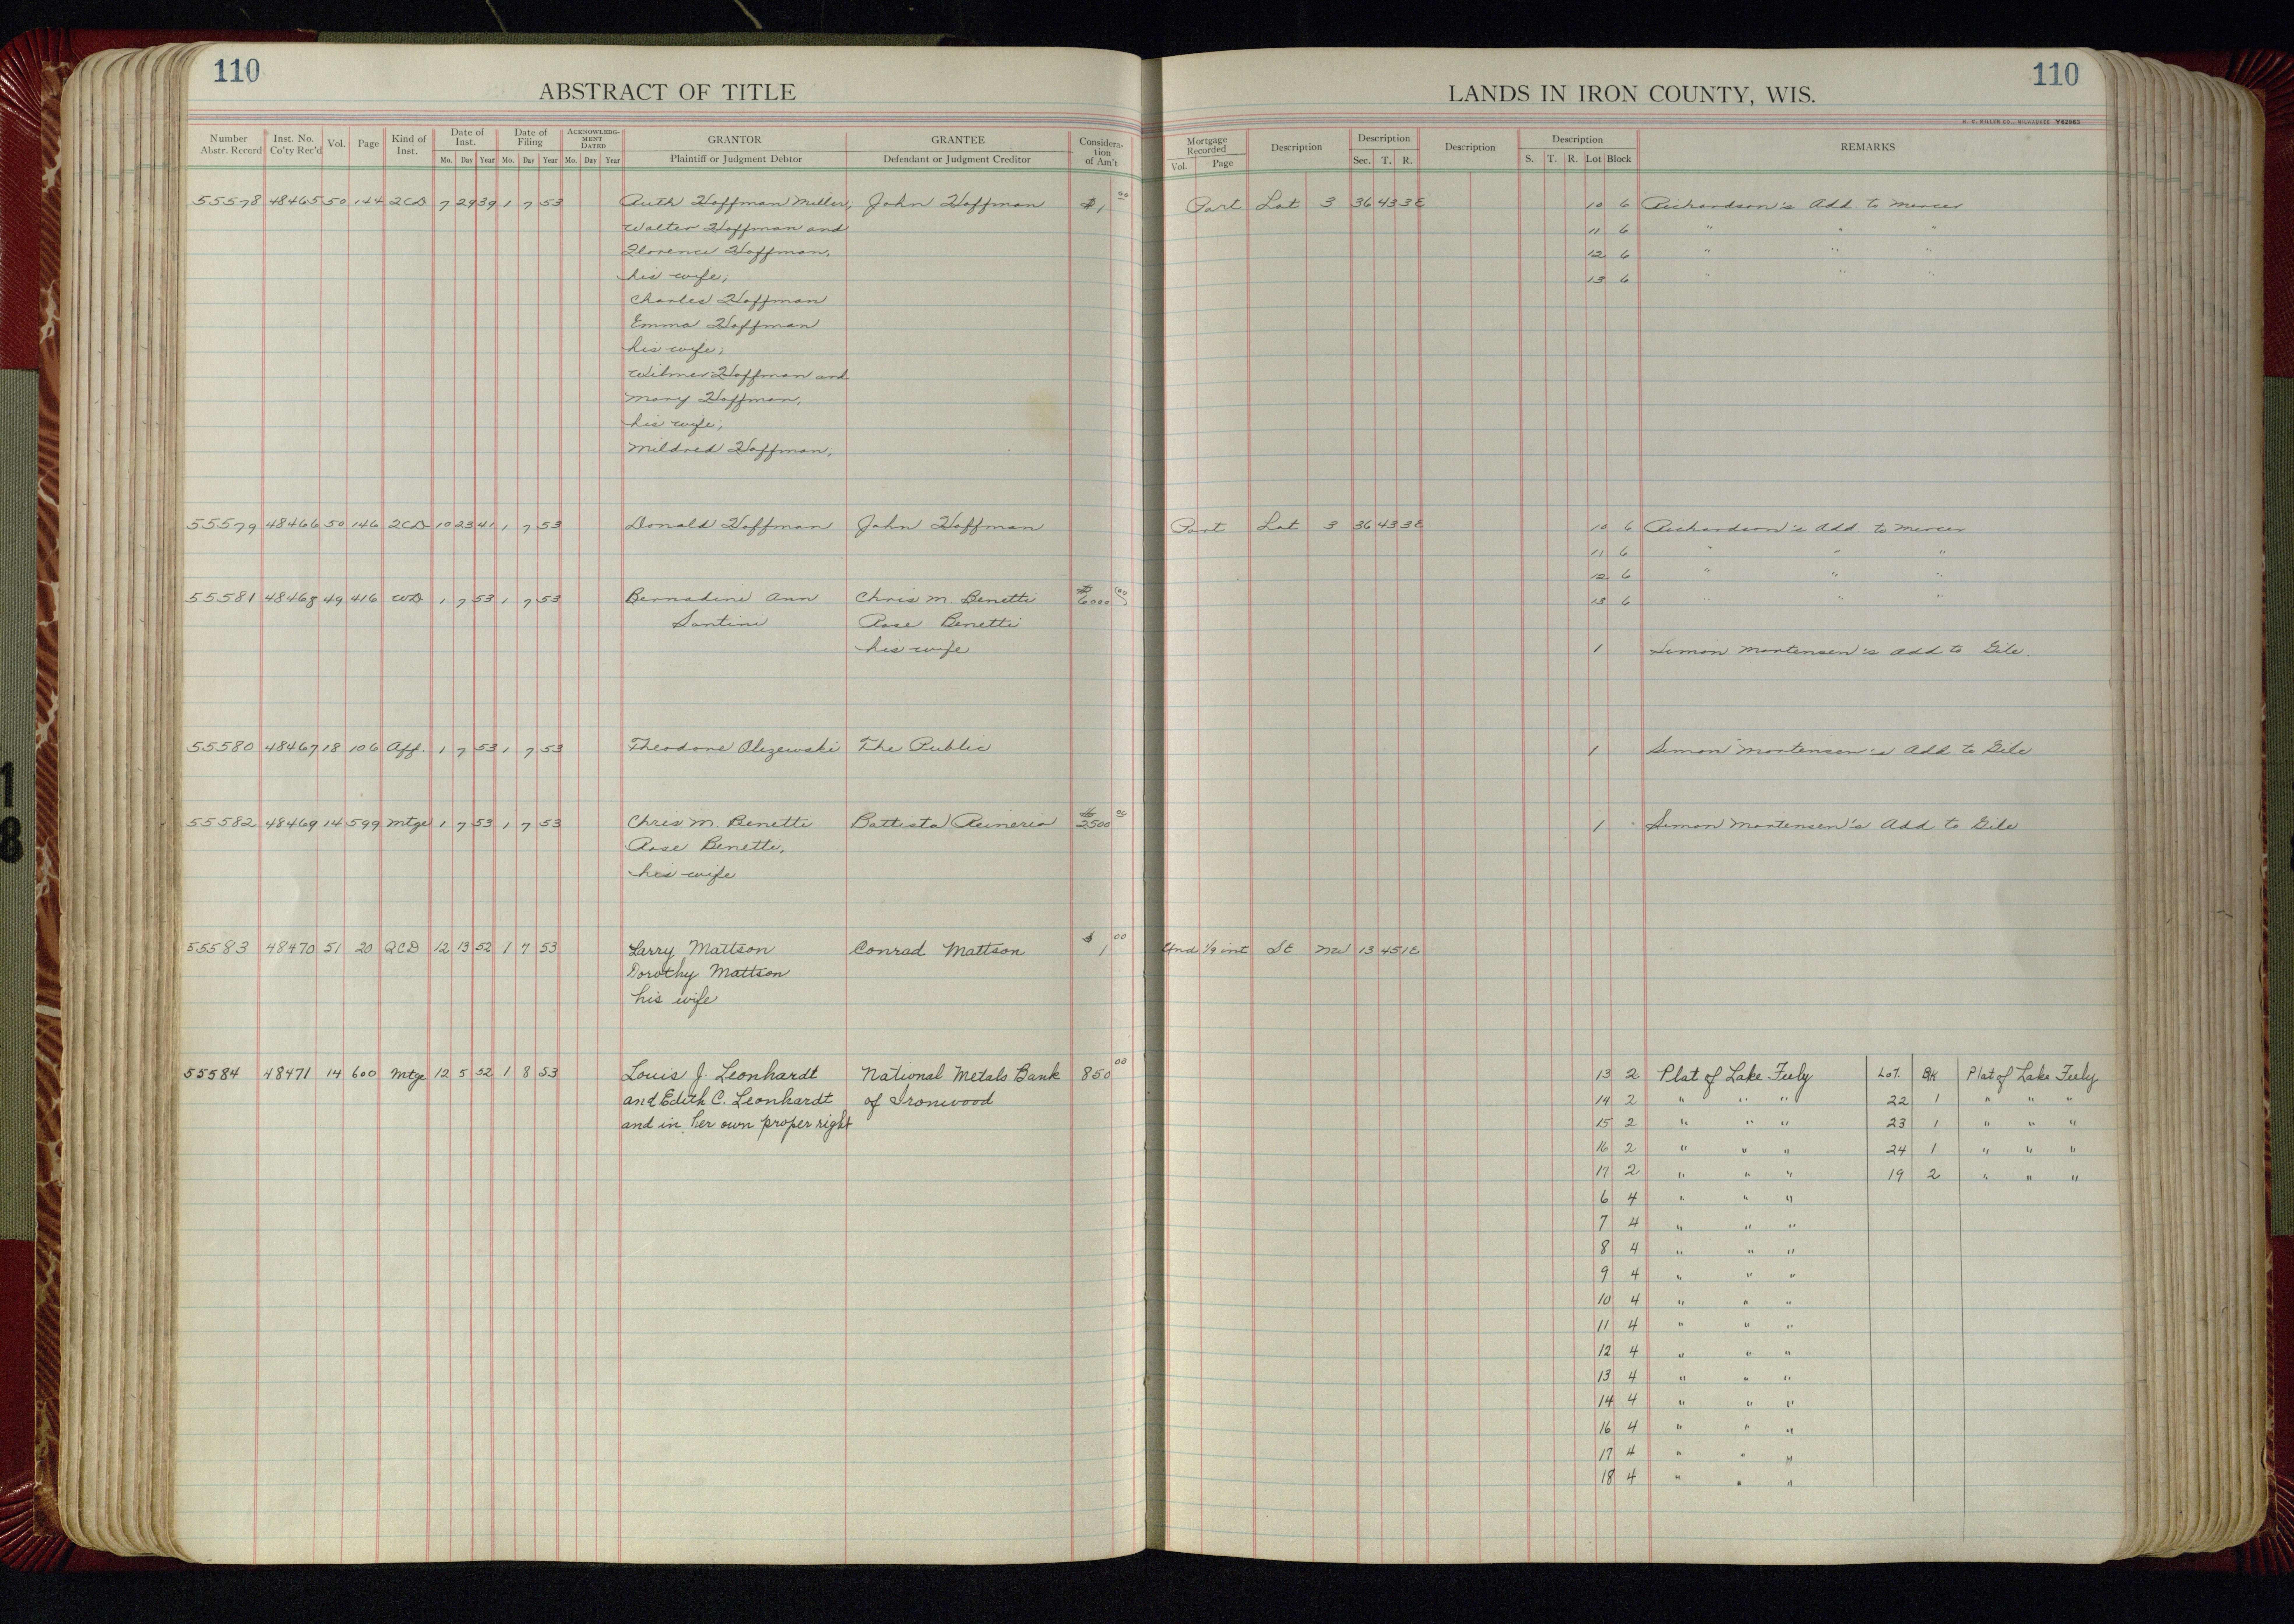 110
ABSTRACT OF TITLE
Number Abstr. Record | Inst. No. Co'ty Rec'd | Vol. | Page | Kind of Inst. | Date of Inst. Mo. Day Year | Date of Filing Mo. Day Year | ACKNOWLEDGMENT DATED Mo. Day Year | GRANTOR Plaintiff or Judgment Debtor | GRANTEE Defendant or Judgment Creditor | Consideration of Am't
55578 48465 50 144 QCD 7 29 39 1 7 53 Ruth Hoffman Miller, John Hoffman $1 00
Walter Hoffman and
Florence Hoffman,
his wife;
Charles Hoffman
Emma Hoffman
his wife;
Wilmer Hoffman and
Mary Hoffman,
his wife;
Mildred Hoffman,
55579 48466 50 146 QCD 10 23 41 1 7 53 Donald Hoffman John Hoffman
55581 48468 49 416 WD 1 7 53 1 7 53 Bernadine Ann Chris M. Benetti $6000 00
Santini Rose Benetti
his wife
55580 48467 18 106 Aff. 1 7 53 1 7 53 Theodore Olizewski The Public
55582 48469 14 599 Mtge 1 7 53 1 7 53 Chris M. Benetti Battista Reineria $2500 00
Rose Benetti,
his wife
55583 48470 51 20 QCD 12 13 52 1 7 53 Larry Mattson Conrad Mattson $1 00
Dorothy Mattson
his wife
55584 48471 14 600 Mtge 12 5 52 1 8 53 Louis J. Leonhardt National Metals Bank 850 00
and Edith C. Leonhardt of Ironwood
and in her own proper right
110
LANDS IN IRON COUNTY, WIS.
H. C. MILLER CO., MILWAUKEE Y62963
Mortgage Recorded Vol. Page | Description | Description Sec. T. R. | Description | Description S. T. R. Lot Block | REMARKS
Part Lot 3 36 43 3E 10 6 Richardson's Add. to Mercer
11 6 " " "
12 6 " " "
13 6 " " "
Part Lot 3 36 43 3E 10 6 Richardson's Add. to Mercer
11 6 " " "
12 6 " " "
13 6 " " "
1 Simon Mortensen's Add to Gile.
1 Simon Mortensen's Add to Gile
1 Simon Mortensen's Add to Gile
Und 1/9 int SE NW 13 45 1E
13 2 Plat of Lake Fuly Lot. Blk Plat of Lake Fuly
14 2 " " " 22 1 " " "
15 2 " " " 23 1 " " "
16 2 " " " 24 1 " " "
17 2 " " " 19 2 " " "
6 4 " " "
7 4 " " "
8 4 " " "
9 4 " " "
10 4 " " "
11 4 " " "
12 4 " " "
13 4 " " "
14 4 " " "
16 4 " " "
17 4 " " "
18 4 " " "
1
8